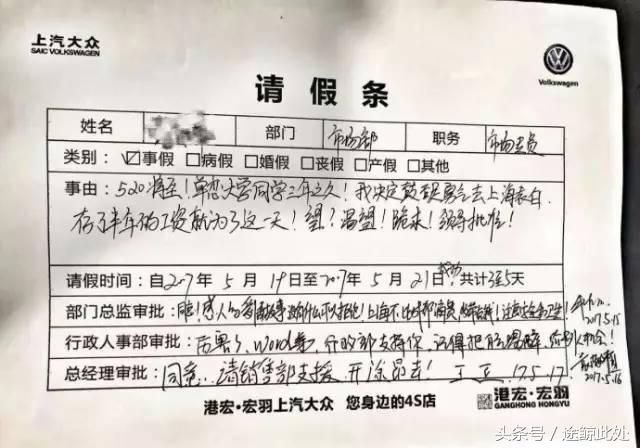 上汽大众
SAIC VOLKSWAGEN
Volkswagen
请假条
姓名 部门 市场部 职务 市场专员
类别: ☑事假 □病假 □婚假 □丧假 □产假 □其他
事由: 520将至!单恋大学同学三年之久!我决定鼓起勇气去上海表白
存了半年的工资就为了这一天!望!渴望!跪求!领导批准!
请假时间: 自2017年5月19日至2017年5月21日 共计3至5天
部门总监审批: 感人 为什么不批 上海不比
2017.5.15
行政人事部审批: 厉害了, Word哥, 行政部支持你, 记得把
2017.5.16
总经理审批: 同意, 请销售部支援, 开途昂去! 17.5.17
港宏·宏羽上汽大众 您身边的4S店
港宏·宏羽
GANGHONG HONGYU
头条号 / 途鲸此处